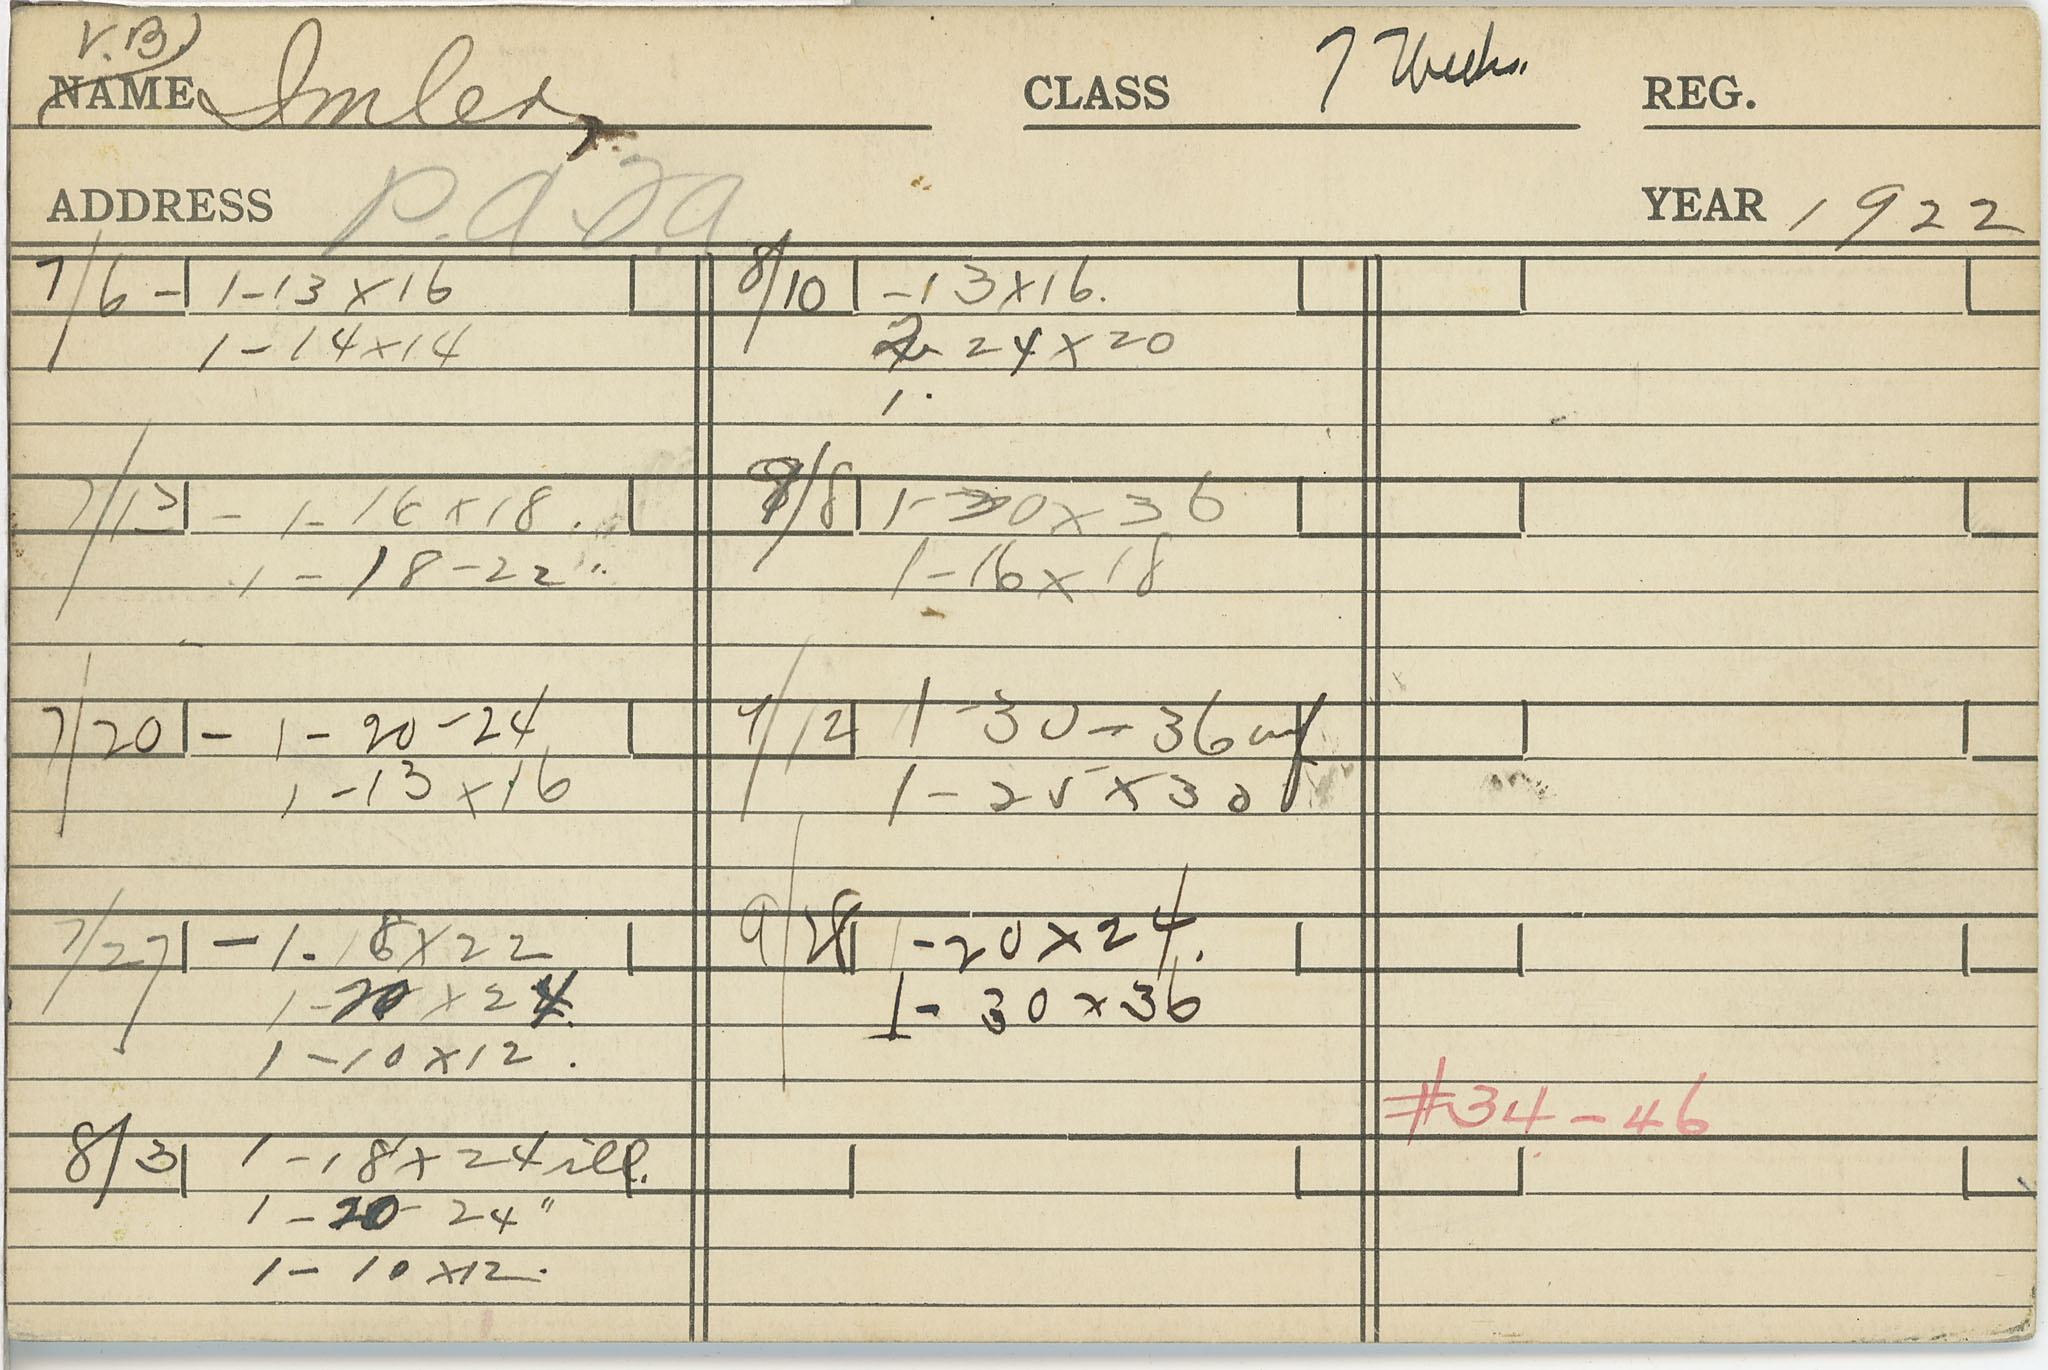 V.B.
NAME Imler, CLASS 7 Weeks. REG.
ADDRESS P.A.F.A YEAR 1922
7/6 - 1-13x16
1-14x14
7/13 - 1-16x18.
1-18-22"
7/20 - 1-20-24
1-13x16
7/27 - 1-18x22
1-20x24.
1-10x12.
8/3 1-18x24 ill.
1-20-24"
1-10x12.
8/10 -13x16.
2- 24x20
1.
9/8 1-30x36
1-16x18
9/12 1-30-36
1-25x30
9/28 1-20x24.
1-30x36
#34-46